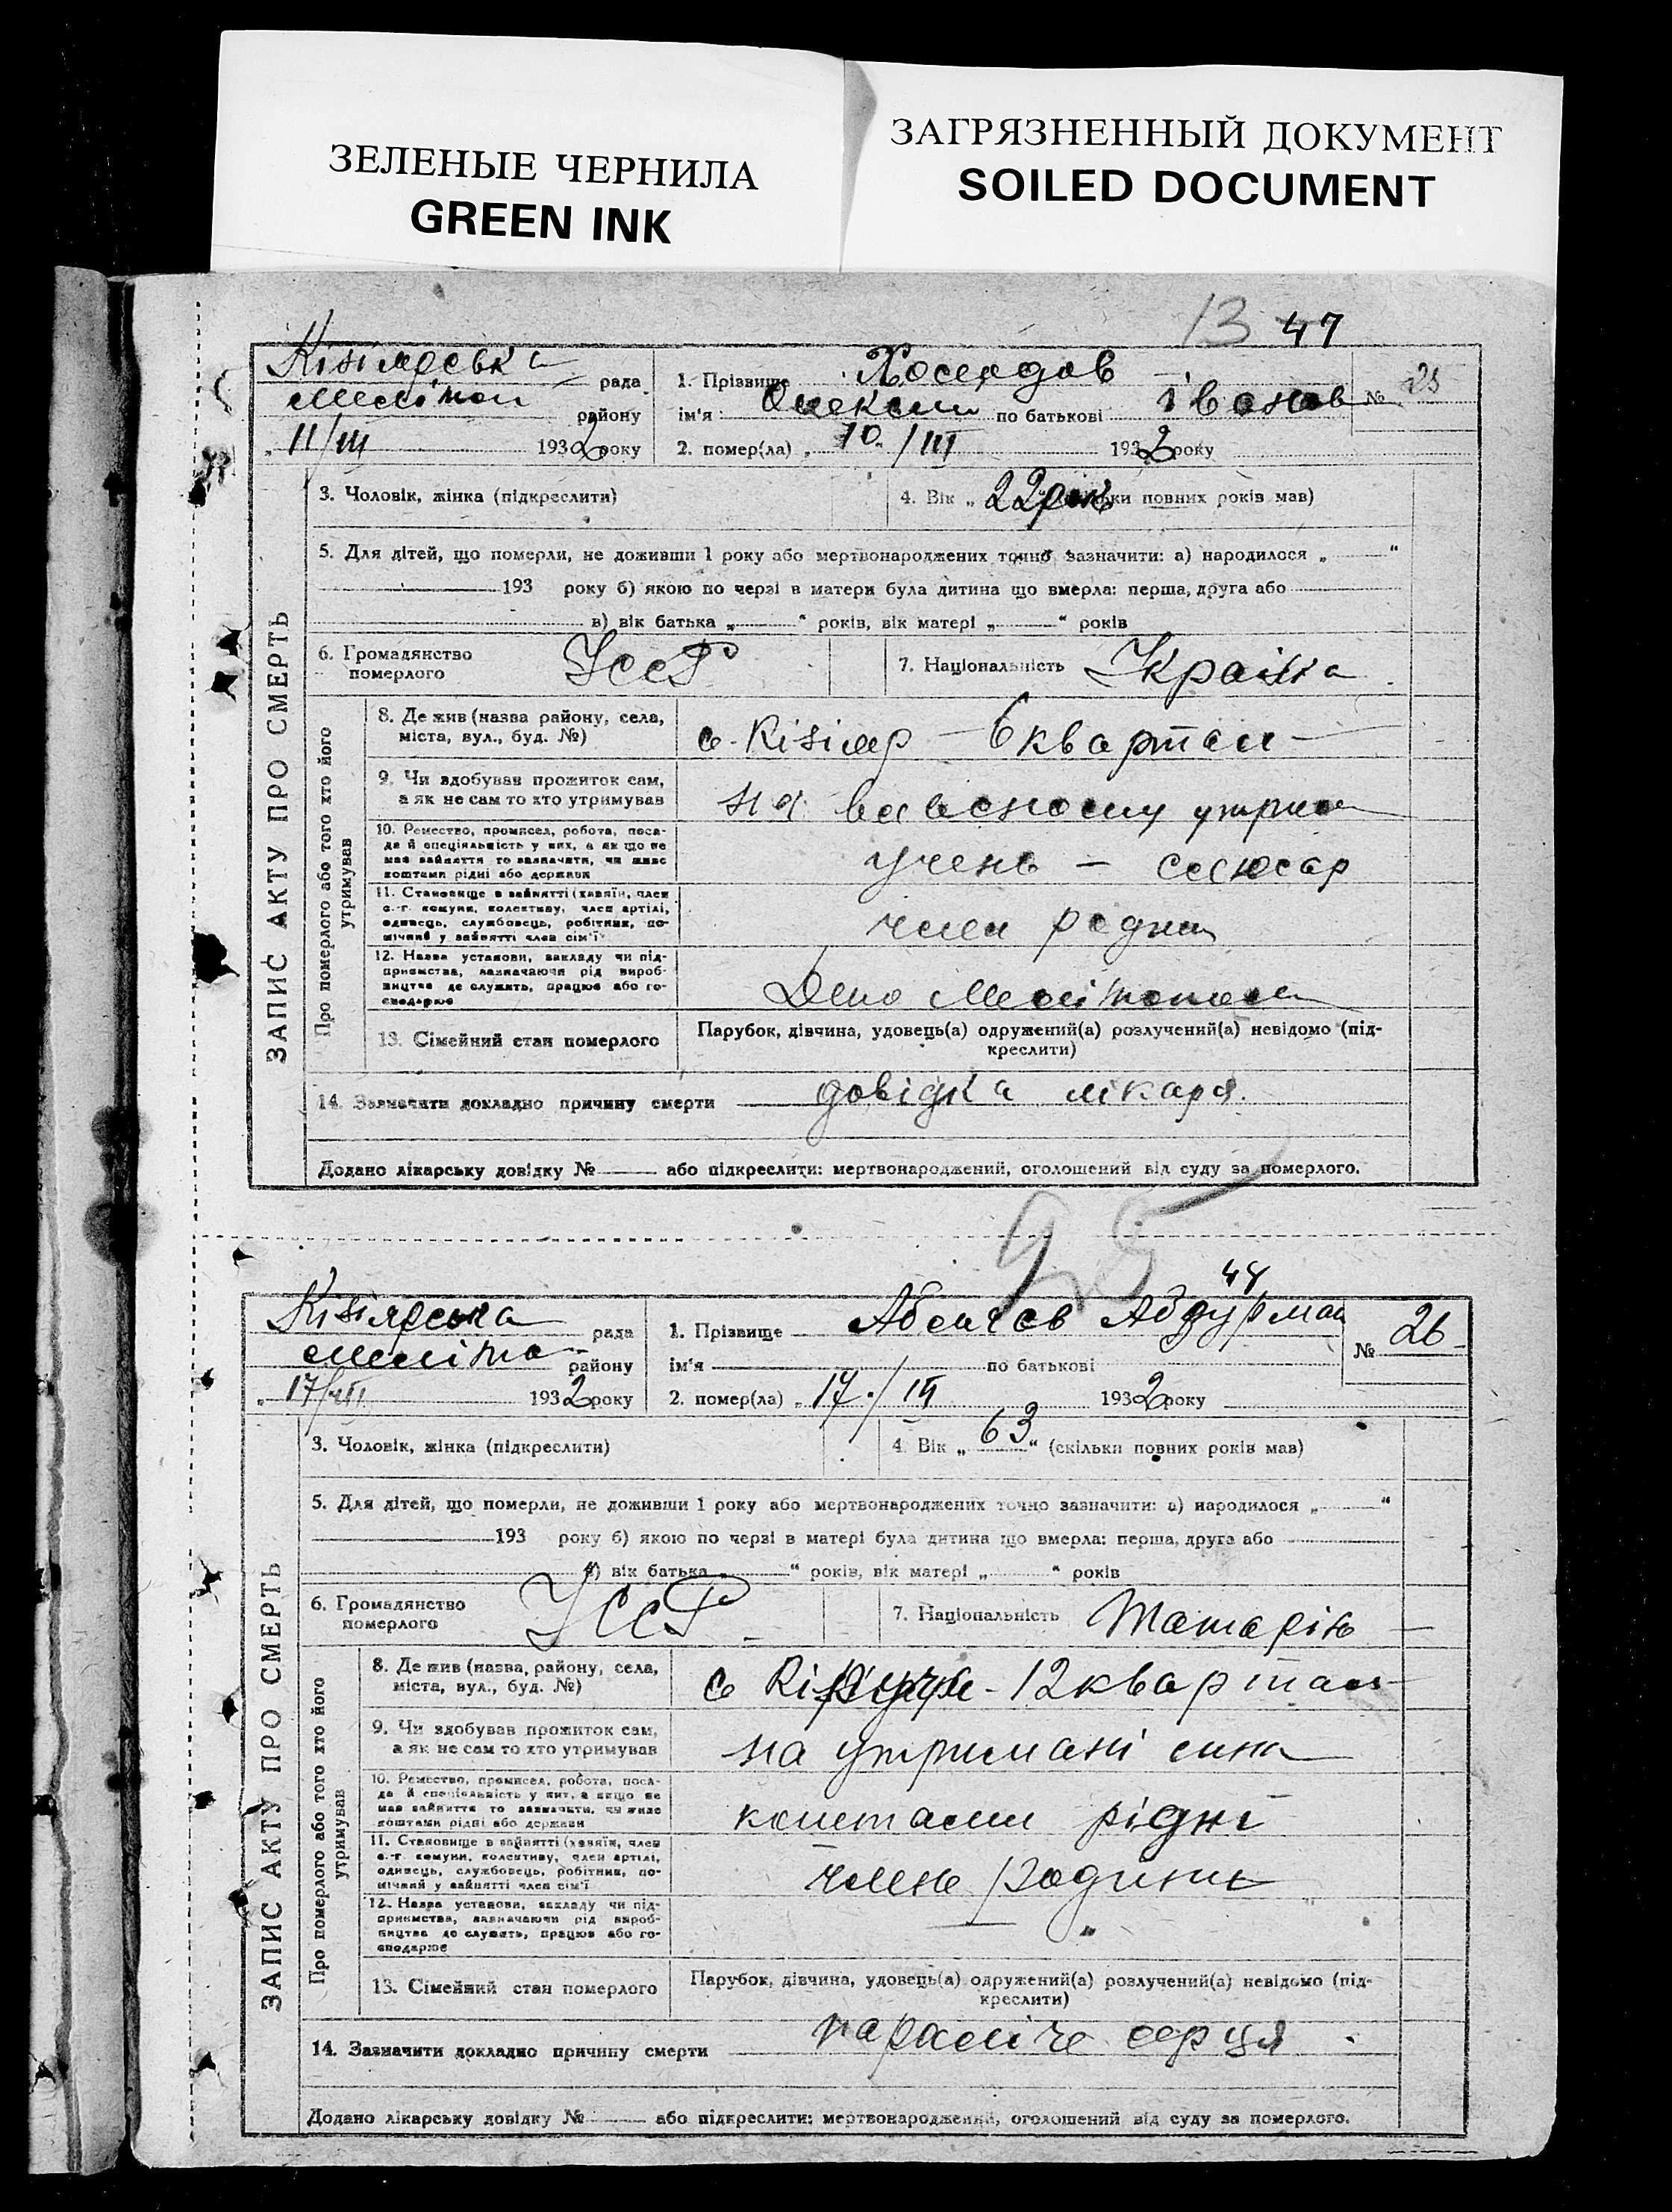 ЗЕЛЕНЫЕ ЧЕРНИЛА
GREEN INK
ЗАГРЯЗНЕННЫЙ ДОКУМЕНТ
SOILED DOCUMENT
13 47
ЗАПИС АКТУ ПРО СМЕРТЬ
Кізіярська рада
Мелітоп району
„ 11/III 1932 року
1. Прізвище
ім'я Олексій по батькові Іванов
№ 25
2. помер(ла) „ 10/III 1932 року
3. Чоловік, жінка (підкреслити)
4. Вік „ 22 рок (скільки повних років мав)
5. Для дітей, що померли, не доживши 1 року або мертвонароджених точно зазначити: а) народилося „ “
193 року б) якою по черзі в матери була дитина що вмерла: перша, друга або
в) вік батька „ “ років, вік матері „ “ років
6. Громадянство померлого УССР
7. Національність Україна
Про померлого або того хто його утримував
8. Де жив (назва району, села, міста, вул., буд. №)
с. Кізіяр – 6 квартал –
9. Чи здобував прожиток сам, а як не сам то хто утримував
на власному утрим
10. Ремество, промисел, робота, посада й спеціяльність у них, а як що не мав зайняття то зазначити, чи живе коштами рідні або держави
учень – слюсар
11. Становище в зайнятті (хазяїн, член с.-г. комуни, колективу, член артілі, одинець, службовець, робітник, помічний у зайнятті член сім'ї
член родин
12. Назва установи, закладу чи підприємства, зазначаючи рід виробництва де служить, працює або господарює
Депо Мелітополя
13. Сімейний стан померлого
Парубок, дівчина, удовець(а) одружений(а) розлучений(а) невідомо (підкреслити)
14. Зазначити докладно причину смерти довідка лікаря.
Додано лікарську довідку № або підкреслити: мертвонароджений, оголошений від суду за померлого.
95
48
ЗАПИС АКТУ ПРО СМЕРТЬ
Кізіярська рада
Меліто району
„ 17/III 1932 року
1. Прізвище Абдурман
ім'я по батькові
№ 26
2. помер(ла) „ 17./III 1932 року
3. Чоловік, жінка (підкреслити)
4. Вік „ 63 “ (скільки повних років мав)
5. Для дітей, що померли, не доживши 1 року або мертвонароджених точно зазначити: а) народилося „ “
193 року б) якою по черзі в матері була дитина що вмерла: перша, друга або
в) вік батька „ “ років, вік матері „ “ років
6. Громадянство померлого УССР
7. Національність Татарін
Про померлого або того хто його утримував
8. Де жив (назва, району, села, міста, вул., буд. №)
с 12 квартал
9. Чи здобував прожиток сам, а як не сам то хто утримував
на утримані сина
10. Ремество, промисел, робота, посада й спеціяльність у них, а якщо не мав зайняття то зазначити, чи живе коштами рідні або держави
коштами рідні
11. Становище в зайнятті (хазяїн, член с.-г. комуни, колективу, член артілі, одинець, службовець, робітник, помічний у зайнятті член сім'ї
член родини
12. Назва установи, закладу чи підприємства, зазначаючи рід виробництва де служить, працює або господарює
— „
13. Сімейний стан померлого
Парубок, дівчина, удовець(а) одружений(а) розлучений(а) невідомо (підкреслити)
14. Зазначити докладно причину смерти параліч серця
Додано лікарську довідку № або підкреслити: мертвонароджений, оголошений від суду за померлого.